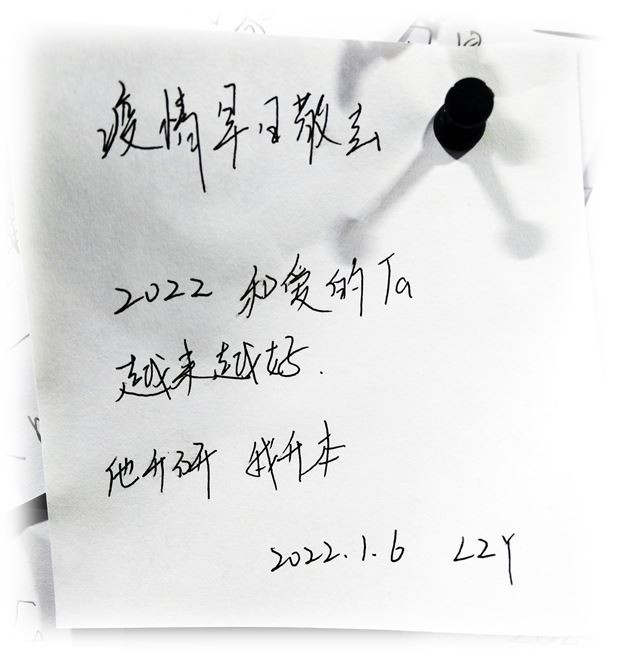 疫情早日散去
2022 和爱的Ta
越来越好.
他升研 我升本
2022.1.6 LZY